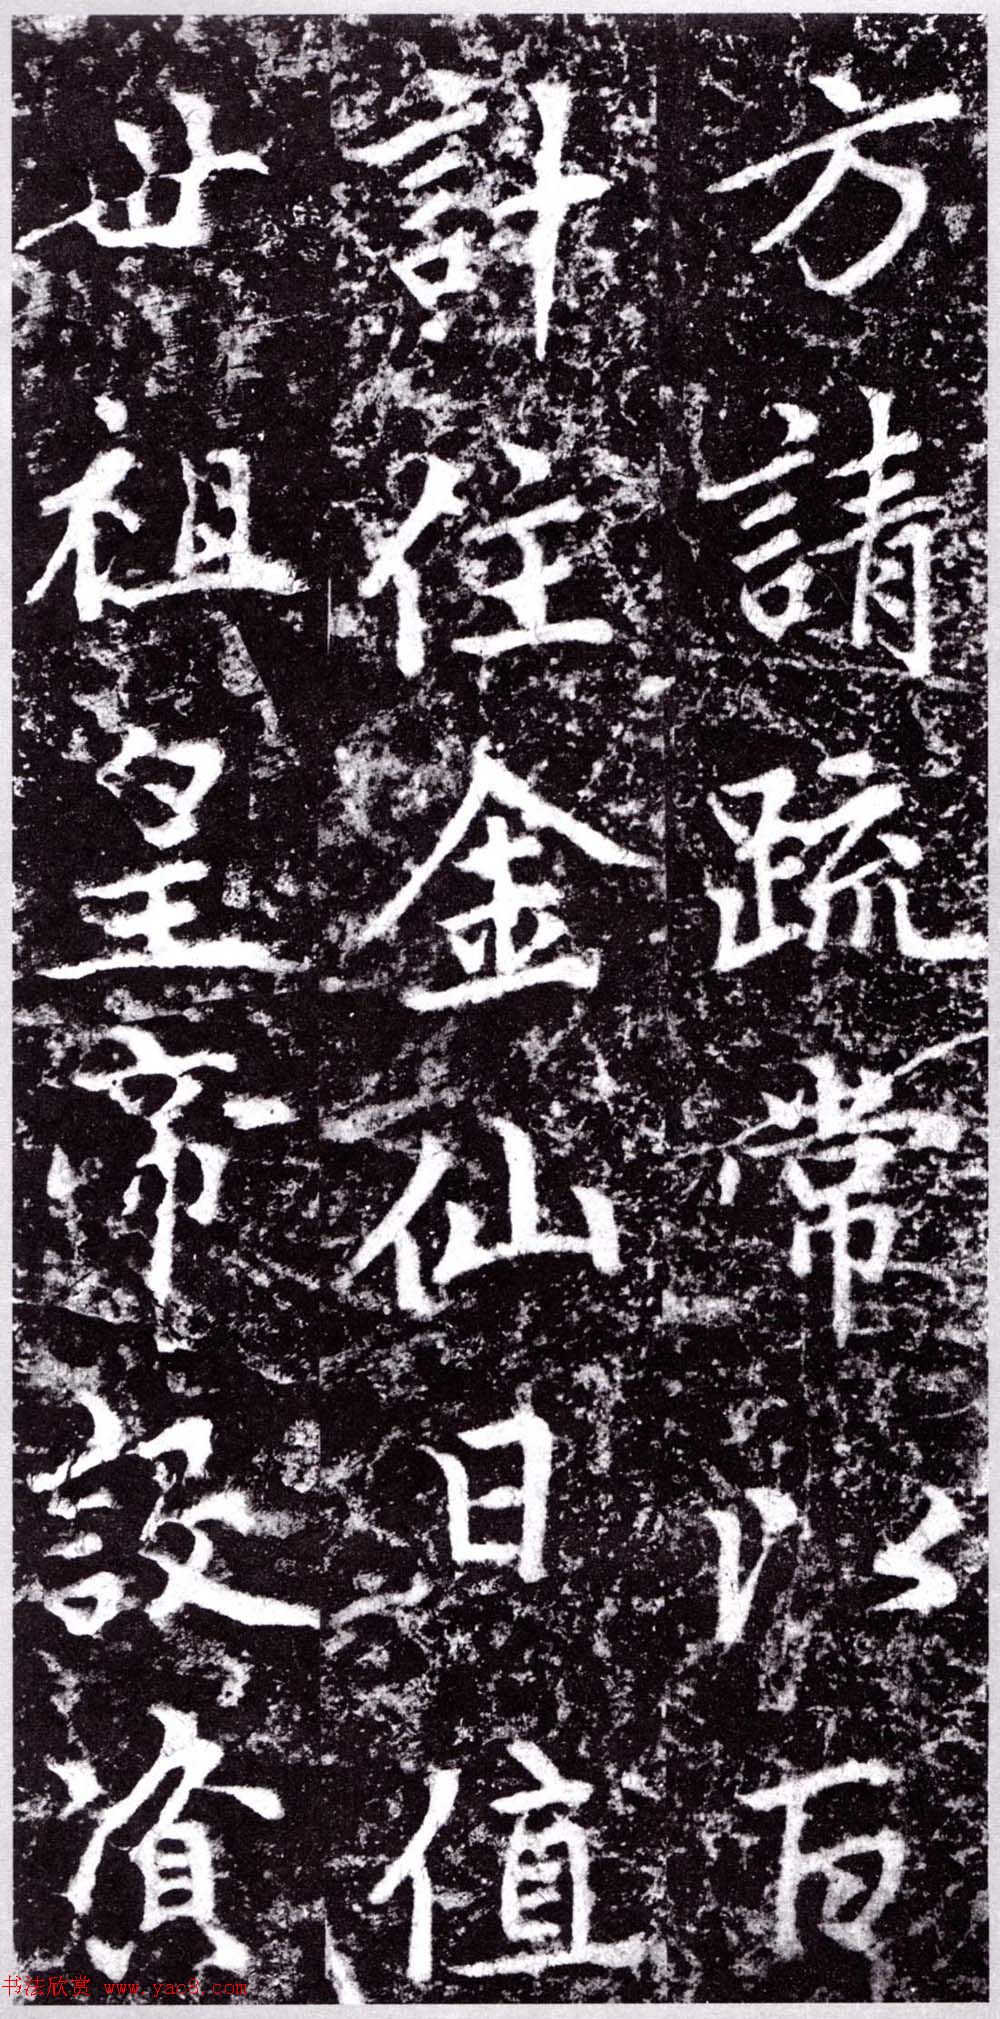 方請疏常以百
計住金仙日值
世祖皇帝設資
书法欣赏 www.yac8.com